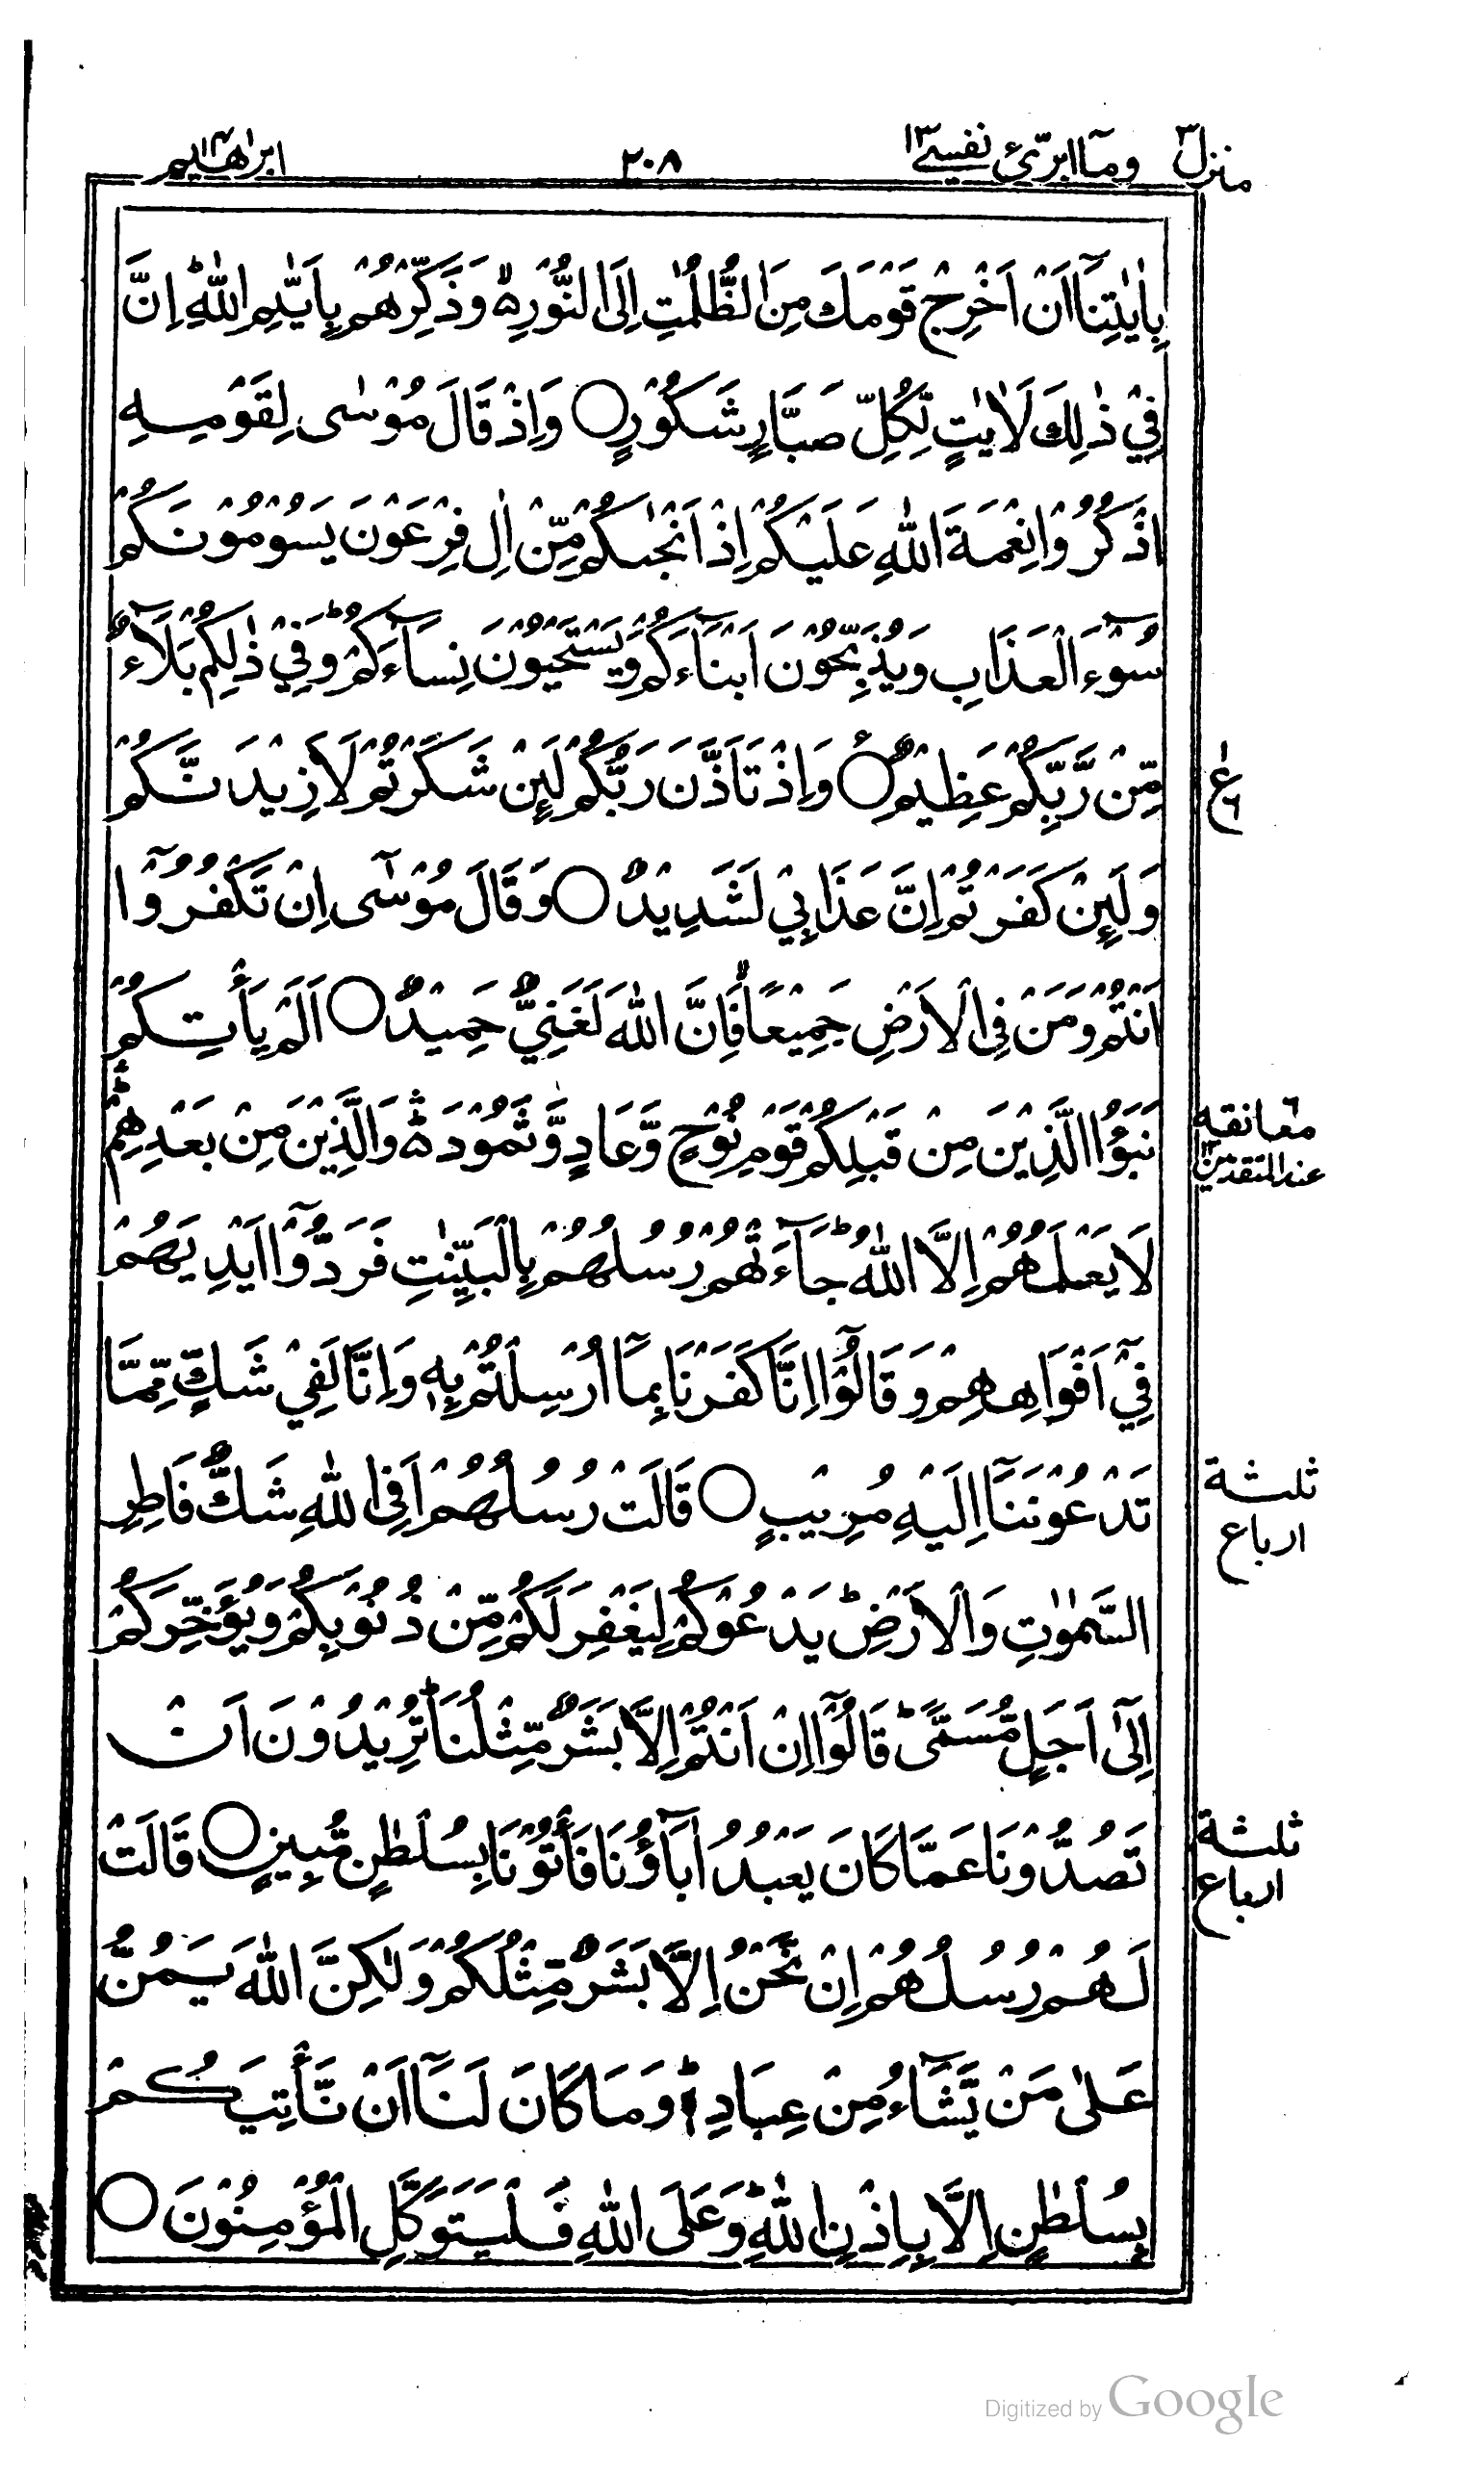 منزل ٣ ومآ ابرّئ نفسي ١٣ ٢٠٨ ابرٰهيم ١٤
بِاٰيٰتِنَآ اَنْ اَخْرِجْ قَوْمَكَ مِنَ الظُّلُمٰتِ اِلَى النُّوْرِ ۙ وَذَكِّرْهُمْ بِاَيّٰىمِ اللّٰهِ ؕ اِنَّ
فِيْ ذٰلِكَ لَاٰيٰتٍ لِّكُلِّ صَبَّارٍ شَكُوْرٍ ○ وَاِذْ قَالَ مُوْسٰى لِقَوْمِهِ
اذْكُرُوْا نِعْمَةَ اللّٰهِ عَلَيْكُمْ اِذْ اَنْجٰىكُمْ مِّنْ اٰلِ فِرْعَوْنَ يَسُوْمُوْنَكُمْ
سُوْٓءَ الْعَذَابِ وَيُذَبِّحُوْنَ اَبْنَآءَكُمْ وَيَسْتَحْيُوْنَ نِسَآءَكُمْ ؕ وَفِيْ ذٰلِكُمْ بَلَآءٌ
مِّنْ رَّبِّكُمْ عَظِيْمٌ ○ وَاِذْ تَاَذَّنَ رَبُّكُمْ لَئِنْ شَكَرْتُمْ لَاَزِيْدَنَّكُمْ
ع
وَلَئِنْ كَفَرْتُمْ اِنَّ عَذَابِيْ لَشَدِيْدٌ ○ وَقَالَ مُوْسٰٓى اِنْ تَكْفُرُوْٓا
اَنْتُمْ وَمَنْ فِى الْاَرْضِ جَمِيْعًا ۙ فَاِنَّ اللّٰهَ لَغَنِيٌّ حَمِيْدٌ ○ اَلَمْ يَاْتِكُمْ
نَبَؤُا الَّذِيْنَ مِنْ قَبْلِكُمْ قَوْمِ نُوْحٍ وَّعَادٍ وَّثَمُوْدَ ۛ وَالَّذِيْنَ مِنْ بَعْدِهِمْ ۛ
معانقه ٦
عند المتقدمين ١٢
لَا يَعْلَمُهُمْ اِلَّا اللّٰهُ ؕ جَآءَتْهُمْ رُسُلُهُمْ بِالْبَيِّنٰتِ فَرَدُّوْٓا اَيْدِيَهُمْ
فِيْٓ اَفْوَاهِهِمْ وَقَالُوْٓا اِنَّا كَفَرْنَا بِمَآ اُرْسِلْتُمْ بِهٖ وَاِنَّا لَفِيْ شَكٍّ مِّمَّا
تَدْعُوْنَنَآ اِلَيْهِ مُرِيْبٍ ○ قَالَتْ رُسُلُهُمْ اَفِى اللّٰهِ شَكٌّ فَاطِرِ
ثلثة
ارباع
السَّمٰوٰتِ وَالْاَرْضِ ؕ يَدْعُوْكُمْ لِيَغْفِرَ لَكُمْ مِّنْ ذُنُوْبِكُمْ وَيُؤَخِّرَكُمْ
اِلٰٓى اَجَلٍ مُّسَمًّى ؕ قَالُوْٓا اِنْ اَنْتُمْ اِلَّا بَشَرٌ مِّثْلُنَا ؕ تُرِيْدُوْنَ اَنْ
تَصُدُّوْنَا عَمَّا كَانَ يَعْبُدُ اٰبَآؤُنَا فَاْتُوْنَا بِسُلْطٰنٍ مُّبِيْنٍ ○ قَالَتْ
ثلثة
ارباع
لَهُمْ رُسُلُهُمْ اِنْ نَّحْنُ اِلَّا بَشَرٌ مِّثْلُكُمْ وَلٰكِنَّ اللّٰهَ يَمُنُّ
عَلٰى مَنْ يَّشَآءُ مِنْ عِبَادِهٖ ؕ وَمَا كَانَ لَنَآ اَنْ نَّاْتِيَكُمْ
بِسُلْطٰنٍ اِلَّا بِاِذْنِ اللّٰهِ ؕ وَعَلَى اللّٰهِ فَلْيَتَوَكَّلِ الْمُؤْمِنُوْنَ ○
Digitized by Google